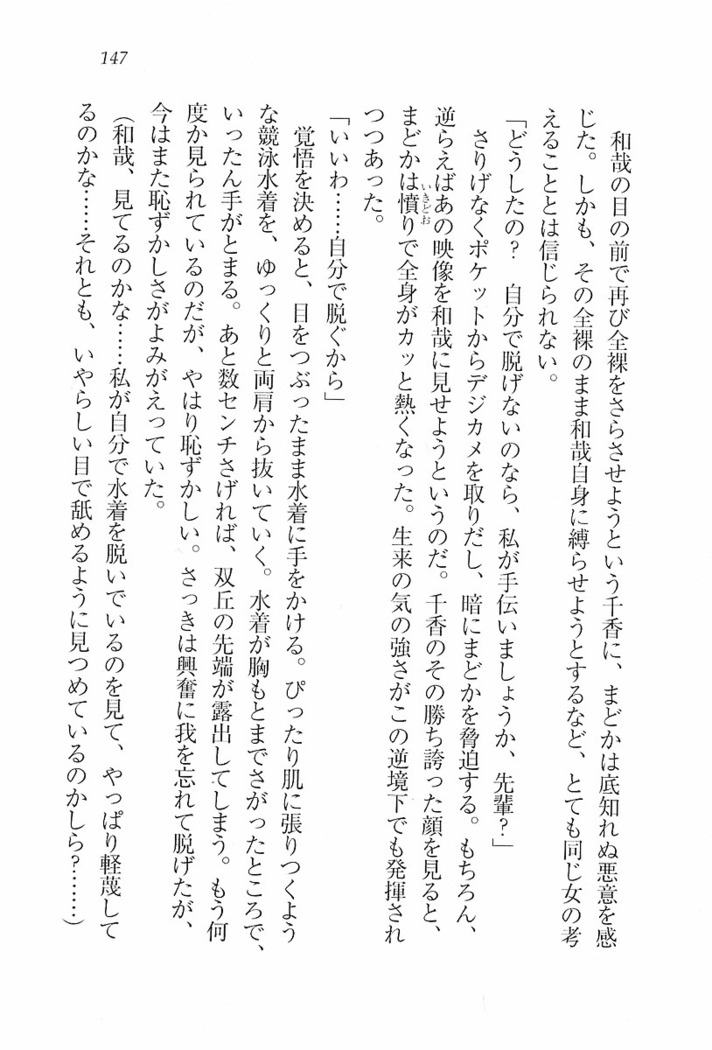 147
和哉の目の前で再び全裸をさらさせようという千香に、まどかは底知れぬ悪意を感
じた。しかも、その全裸のまま和哉自身に縛らせようとするなど、とても同じ女の考
えることとは信じられない。
「どうしたの？　自分で脱げないのなら、私が手伝いましょうか、先輩？」
さりげなくポケットからデジカメを取りだし、暗にまどかを脅迫する。もちろん、
逆らえばあの映像を和哉に見せようというのだ。千香のその勝ち誇った顔を見ると、
まどかは憤りで全身がカッと熱くなった。生来の気の強さがこの逆境下でも発揮され
いきどお
つつあった。
「いいわ……自分で脱ぐから」
覚悟を決めると、目をつぶったまま水着に手をかける。ぴったり肌に張りつくよう
な競泳水着を、ゆっくりと両肩から抜いていく。水着が胸もとまでさがったところで、
いったん手がとまる。あと数センチさげれば、双丘の先端が露出してしまう。もう何
度か見られているのだが、やはり恥ずかしい。さっきは興奮に我を忘れて脱げたが、
今はまた恥ずかしさがよみがえっていた。
（和哉、見てるのかな……私が自分で水着を脱いでいるのを見て、やっぱり軽蔑して
るのかな……それとも、いやらしい目で舐めるように見つめているのかしら？………）